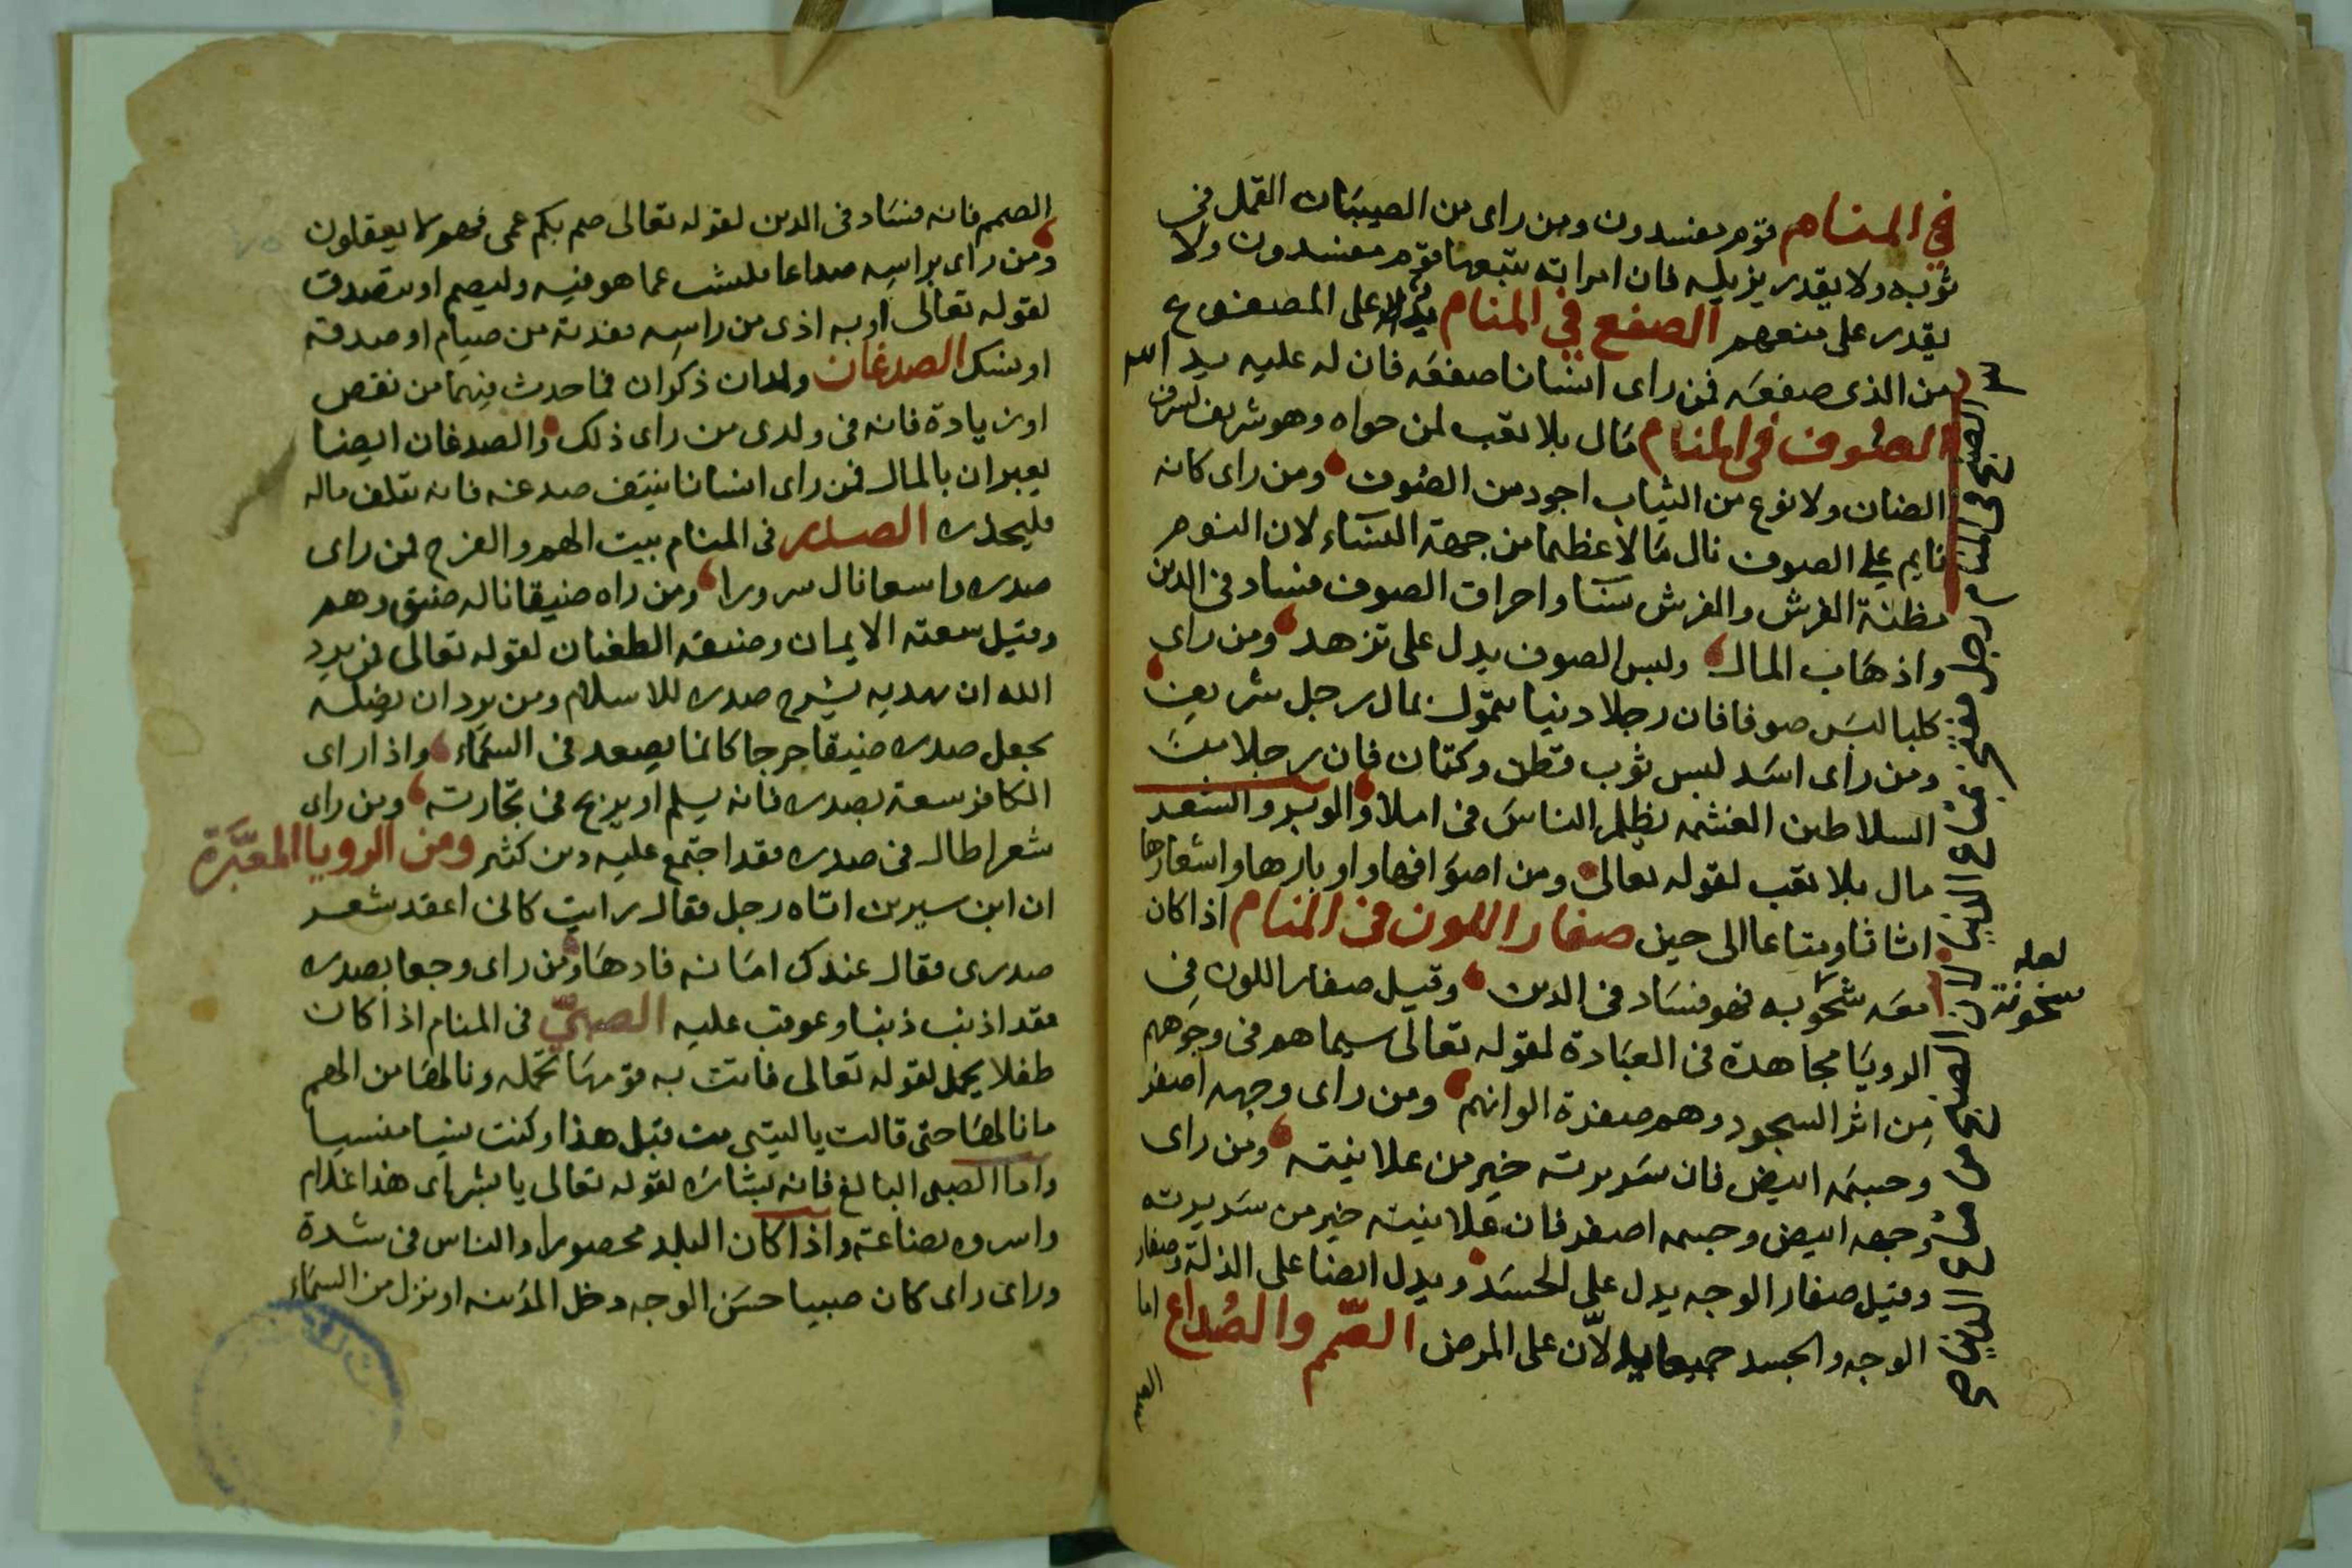 في المنام قوم مفسدون ومن راى من الصيبان القمل في
ثوبه ولا يقدر يزيله فان امراته يتبعها قوم مفسدون ولا
يقدر على منعهم الصفع في المنام على المصفوع
من الذى صفعه فمن راى انسانا صفعه فان له عليه يد
الصوف في المنام مال بلا تعب لمن حواه وهو شريف لشرف
الضان ولا نوع من الثياب اجود من الصوف ومن راى كانه
نايم على الصوف نال مالا عظيما من جهة النساء لان النوم
مظنة الفرش والفرش نسا واحراق الصوف فساد في الدين
واذهاب المال ولبس الصوف يدل على تزهد ومن راى
كلبا لبس صوفا فان رجلا دنيا يتمول بمال رجل شريف
ومن راى اسد لبس ثوب قطن وكتان فان رجلا من
السلاطين الغشمه يظلم الناس في املا والوبر والشعر
مال بلا تعب لقوله تعالى ومن اصوافها واوبارها واشعارها
اثاثا ومتاعا الى حين صفار اللون في المنام اذا كان
معه شحوبه فهو فساد في الدين وقيل صفار اللون في
الرويا مجاهدة في العبادة لقوله تعالى سيماهم في وجوههم
من اثر السجود وهم صفرة الوانهم ومن راى وجهه اصفر
وجسمه ابيض فان سريرته خير من علانيته ومن راى
وجهه ابيض وجسمه اصفر فان علانيته خير من سريرته
وقيل صفار الوجه يدل على الحسد ويدل ايضا على الذلة وصفار
الوجه والجسد جميعا يدلان على المرض الصمم والصداع اما
الصبغ في المنام رجل
لان الصبغ من
لعله
سخونة
الصمم فانه فساد في الدين لقوله تعالى صم بكم عمى فهم لا يعقلون
ومن راى براسه صداعا فليتب عما هو فيه وليصم او يتصدق
لقوله تعالى او به اذى من راسه ففدية من صيام او صدقة
او نسك الصدغان ولدان ذكران فما حدث فيهما من نقص
او زيادة فانه في ولدى من راى ذلك والصدغان ايضا
يعبران بالمال فمن راى انسانا ينتف صدغه فانه يتلف ماله
فليحذره الصدر في المنام بيت الهم والفرح فمن راى
صدره واسعا نال سرورا ومن راه ضيقا ناله ضيق وهم
وقيل سعته الايمان وضيقه الطغيان لقوله تعالى فمن يرد
الله ان يهديه يشرح صدره للاسلام ومن يرد ان يضله
يجعل صدره ضيقا حرجا كانما يصعد في السماء واذا راى
الكافر سعة بصدره فانه يسلم او يربح في تجارته ومن راى
شعرا طال في صدره فقد اجتمع عليه دين كثير ومن الرويا المعبّرة
ان ابن سيرين اتاه رجل فقال رايت كانى اعقد شعر
صدرى فقال عندك امانه فادها ومن راى وجعا بصدره
فقد اذنب ذنبا وعوقب عليه الصبيّ في المنام اذا كان
طفلا يحمل لقوله تعالى فاتت به قومها تحمله ونالها من الهم
ما نالها حتى قالت يا ليتنى مت قبل هذا وكنت نسيا منسيا
واما الصبى البالغ فانه بشاره لقوله تعالى يا بشراى هذا غلام
واسروه بضاعة واذا كان البلد محصورا والناس في شدة
وراى راى كان صبيا حسن الوجه دخل المدينه او نزل من السماء